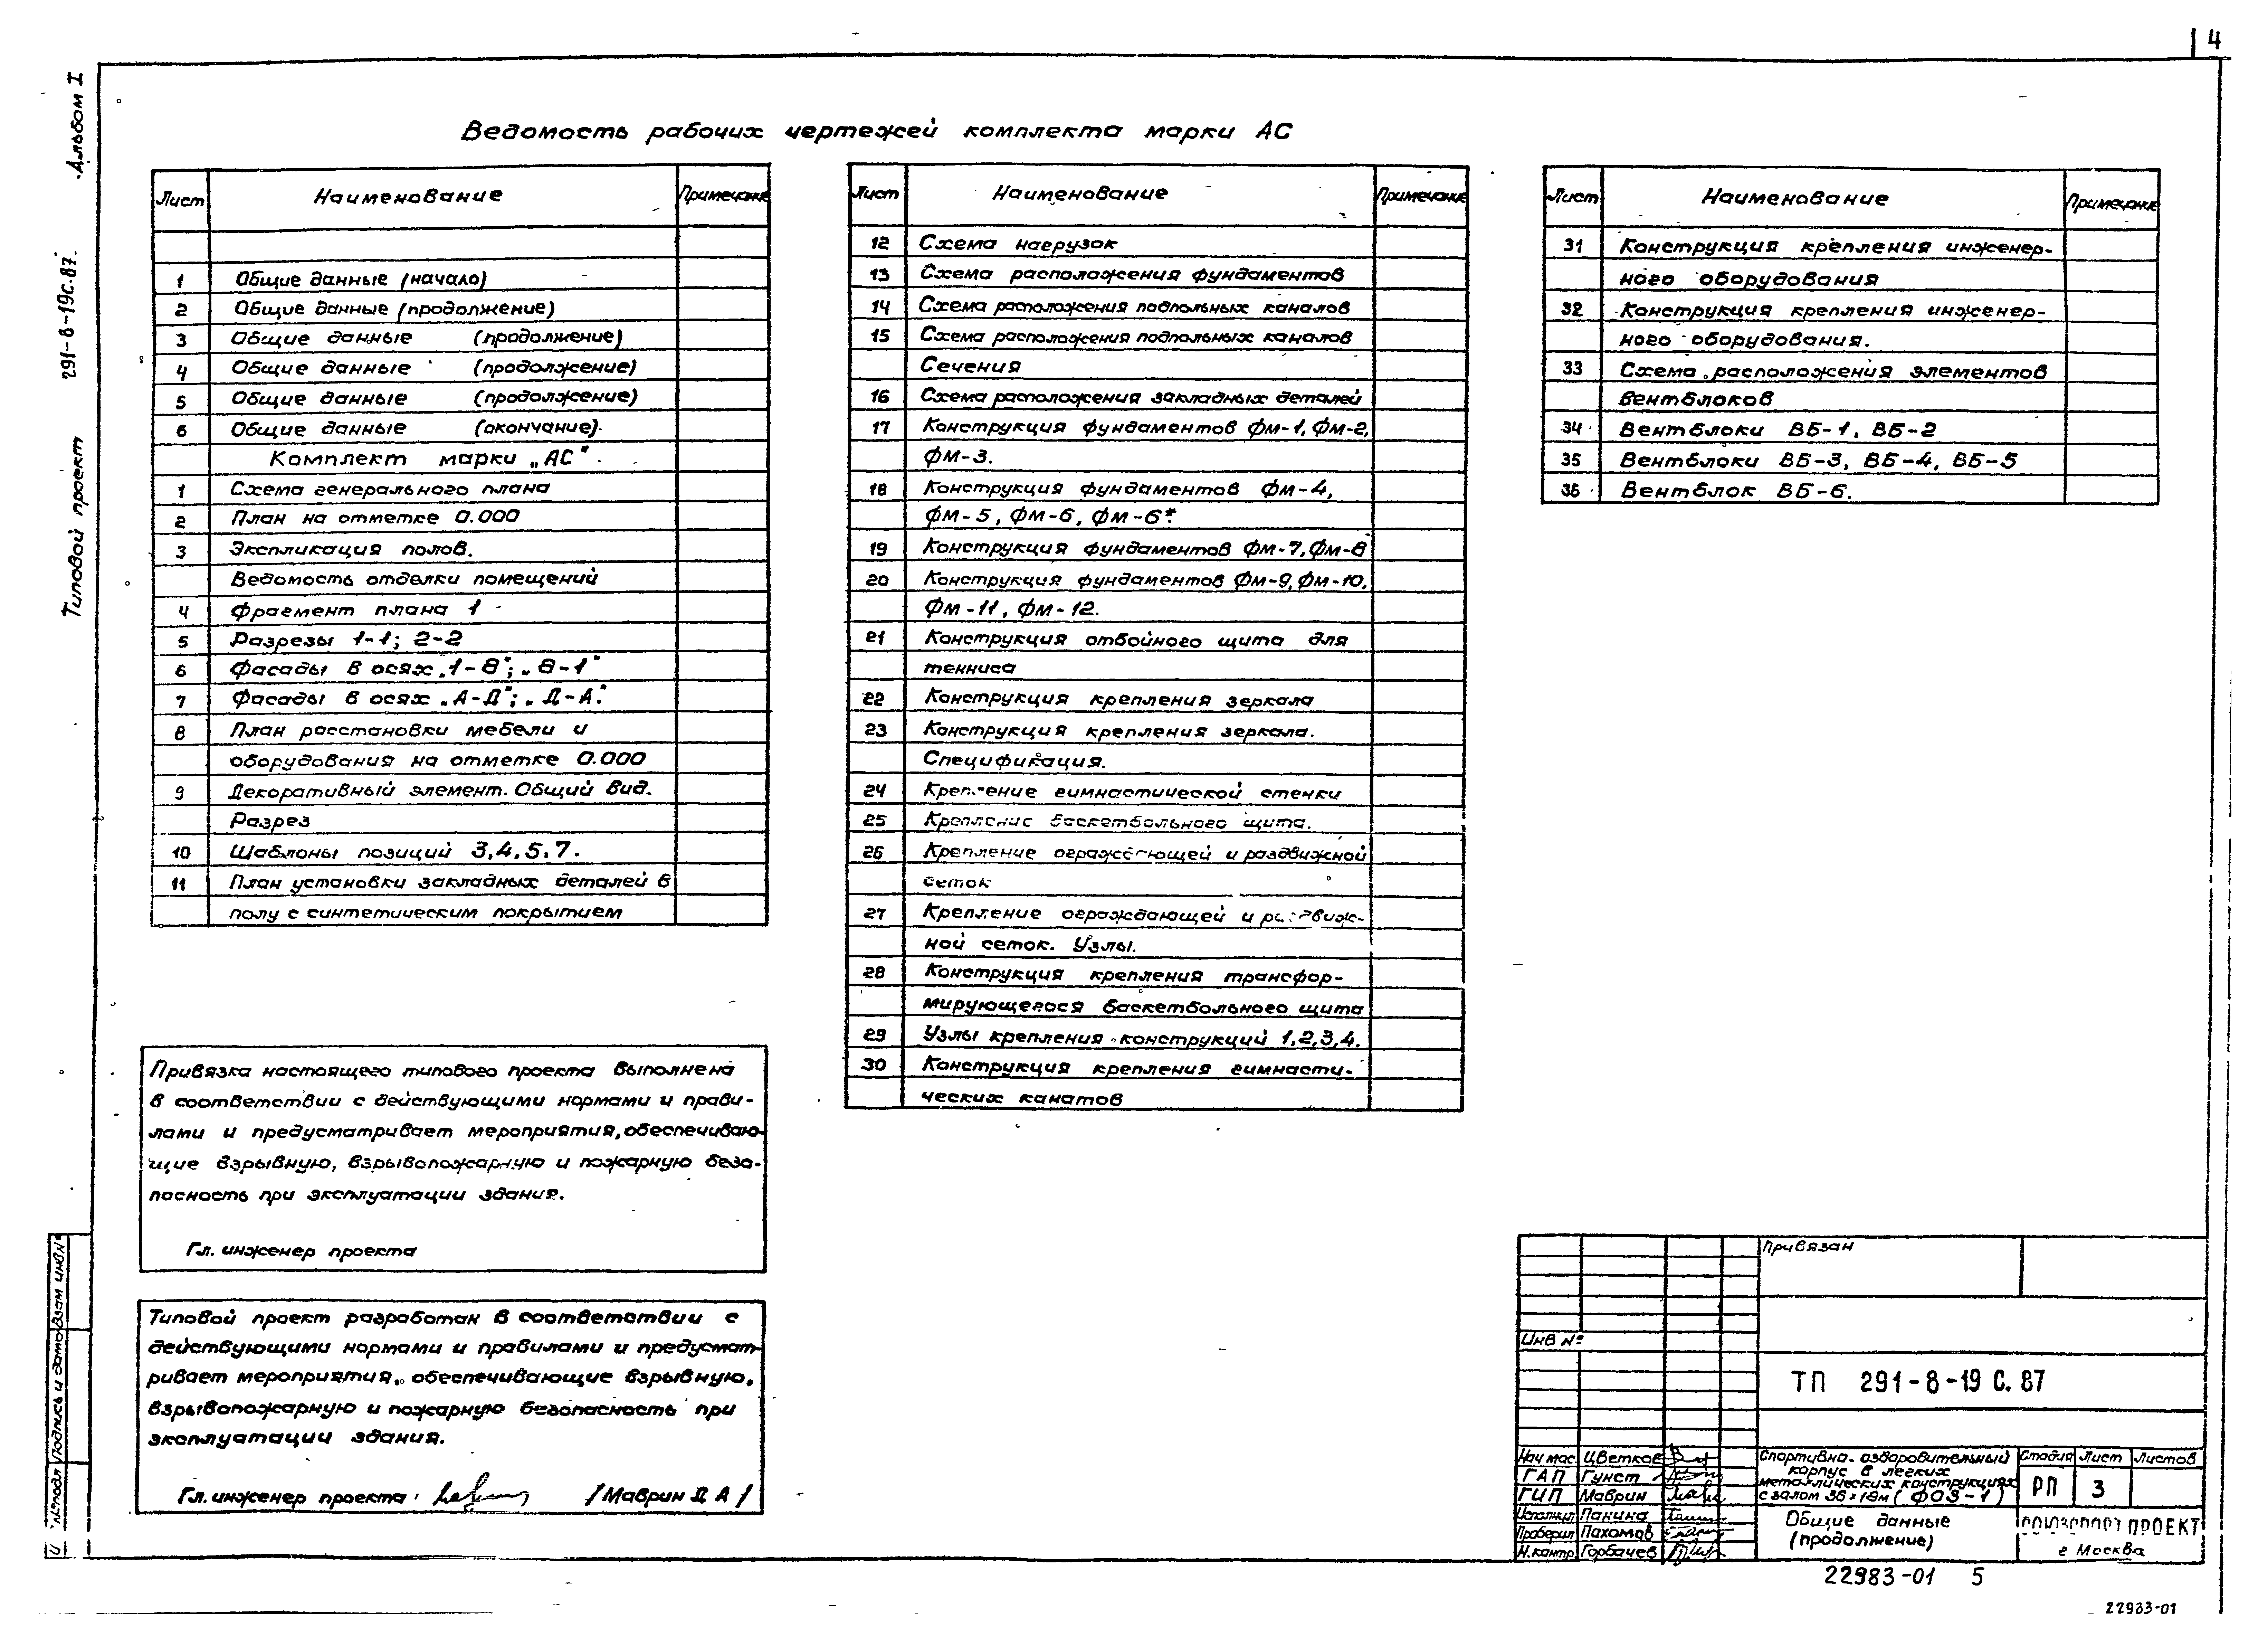 4
Альбом I
Типовой проект 291-8-19с.87.
Ведомость рабочих чертежей комплекта марки АС
Лист Наименование Примечание
1 Общие данные (начало)
2 Общие данные (продолжение)
3 Общие данные (продолжение)
4 Общие данные (продолжение)
5 Общие данные (продолжение)
6 Общие данные (окончание).
Комплект марки „АС".
1 Схема генерального плана
2 План на отметке 0.000
3 Экспликация полов.
Ведомость отделки помещений
4 Фрагмент плана 1
5 Разрезы 1-1; 2-2
6 Фасады в осях „1-8"; „8-1"
7 Фасады в осях „А-Д"; „Д-А".
8 План расстановки мебели и
оборудования на отметке 0.000
9 Декоративный элемент. Общий вид.
Разрез
10 Шаблоны позиций 3,4,5,7.
11 План установки закладных деталей в
полу с синтетическим покрытием
Лист Наименование Примечание
12 Схема нагрузок
13 Схема расположения фундаментов
14 Схема расположения подпольных каналов
15 Схема расположения подпольных каналов
Сечения
16 Схема расположения закладных деталей
17 Конструкция фундаментов ФМ-1, ФМ-2,
ФМ-3.
18 Конструкция фундаментов ФМ-4,
ФМ-5, ФМ-6, ФМ-6*.
19 Конструкция фундаментов ФМ-7, ФМ-8
20 Конструкция фундаментов ФМ-9, ФМ-10,
ФМ-11, ФМ-12.
21 Конструкция отбойного щита для
тенниса
22 Конструкция крепления зеркала
23 Конструкция крепления зеркала.
Спецификация.
24 Крепление гимнастической стенки
25 Крепление баскетбольного щита.
26 Крепление ограждающей и раздвижной
сеток
27 Крепление ограждающей и раздвиж-
ной сеток. Узлы.
28 Конструкция крепления трансфор-
мирующегося баскетбольного щита
29 Узлы крепления конструкций 1,2,3,4.
30 Конструкция крепления гимнасти-
ческих канатов
Лист Наименование Примечание
31 Конструкция крепления инженер-
ного оборудования
32 Конструкция крепления инженер-
ного оборудования.
33 Схема расположения элементов
вентблоков
34 Вентблоки ВБ-1, ВБ-2
35 Вентблоки ВБ-3, ВБ-4, ВБ-5
36 Вентблок ВБ-6.
Привязка настоящего типового проекта выполнена
в соответствии с действующими нормами и прави-
лами и предусматривает мероприятия, обеспечиваю-
щие взрывную, взрывопожарную и пожарную безо-
пасность при эксплуатации здания.
Гл. инженер проекта
Типовой проект разработан в соответствии с
действующими нормами и правилами и предусмат-
ривает мероприятия, обеспечивающие взрывную,
взрывопожарную и пожарную безопасность при
эксплуатации здания.
Гл. инженер проекта /Маврин Д А/
Инв № подл Подпись и дата Взам инв №
Привязан
Инв №
ТП 291-8-19 С. 87
Нач мас. Цветков
ГАП Гунст
ГИП Маврин
Исполнил Панина
Проверил Пахомов
Н.контр. Горбачев
Спортивно-оздоровительный
корпус в легких
металлических конструкциях
с залом 36×18м (ФОЗ-1)
Стадия Лист Листов
РП 3
Общие данные
(продолжение)
СОЮЗСПОРТПРОЕКТ
г Москва
22983-01 5
22983-01